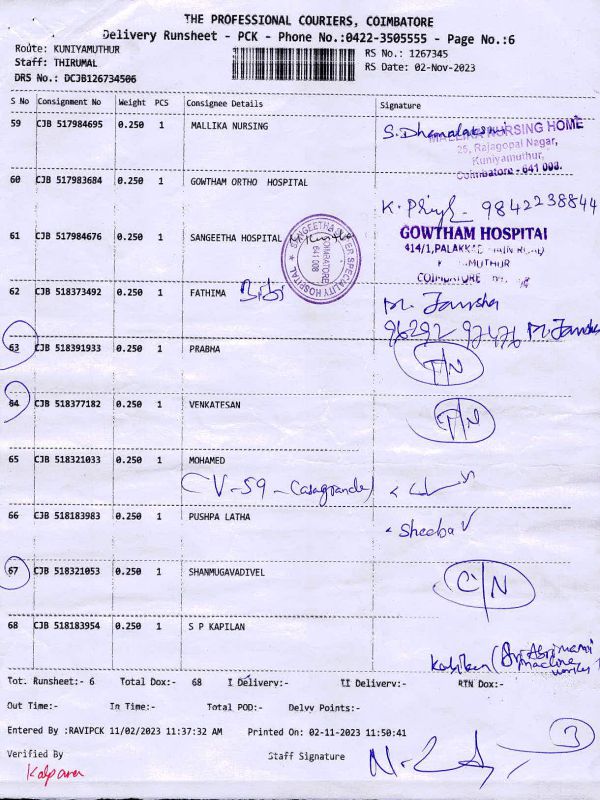 THE PROFESSIONAL COURIERS, COIMBATORE
Delivery Runsheet - PCK - Phone No.:0422-3505555 - Page No.:6
Route: KUNIYAMUTHUR RS No.: 1267345
Staff: THIRUMAL RS Date: 02-Nov-2023
DRS No.: DCJB126734506
S No Consignment No Weight PCS Consignee Details Signature
59 CJB 517984695 0.250 1 MALLIKA NURSING
MALLIKA NURSING HOME
25, Rajagopal Nagar,
Kuniyamuthur,
Coimbatore - 641 008.
60 CJB 517983684 0.250 1 GOWTHAM ORTHO HOSPITAL
K. 9842238844
61 CJB 517984676 0.250 1 SANGEETHA HOSPITAL
SANGEETHA SUPER SPECIALITY HOSPITAL
COIMBATORE 641 008
GOWTHAM HOSPITAL
414/1, PALAKKAD MAIN ROAD
COIMBATORE
62 CJB 518373492 0.250 1 FATHIMA
63 CJB 518391933 0.250 1 PRABHA
T/N
64 CJB 518377182 0.250 1 VENKATESAN
T/N
65 CJB 518321033 0.250 1 MOHAMED
CV-59 - Casagrande
66 CJB 518183983 0.250 1 PUSHPA LATHA
Sheeba
67 CJB 518321053 0.250 1 SHANMUGAVADIVEL
C/N
68 CJB 518183954 0.250 1 S P KAPILAN
Tot. Runsheet:- 6 Total Dox:- 68 I Delivery:- II Delivery:- RTN Dox:-
Out Time:- In Time:- Total POD:- Delvy Points:-
Entered By :RAVIPCK 11/02/2023 11:37:32 AM Printed On: 02-11-2023 11:50:41
3
Verified By Staff Signature
Kalpana